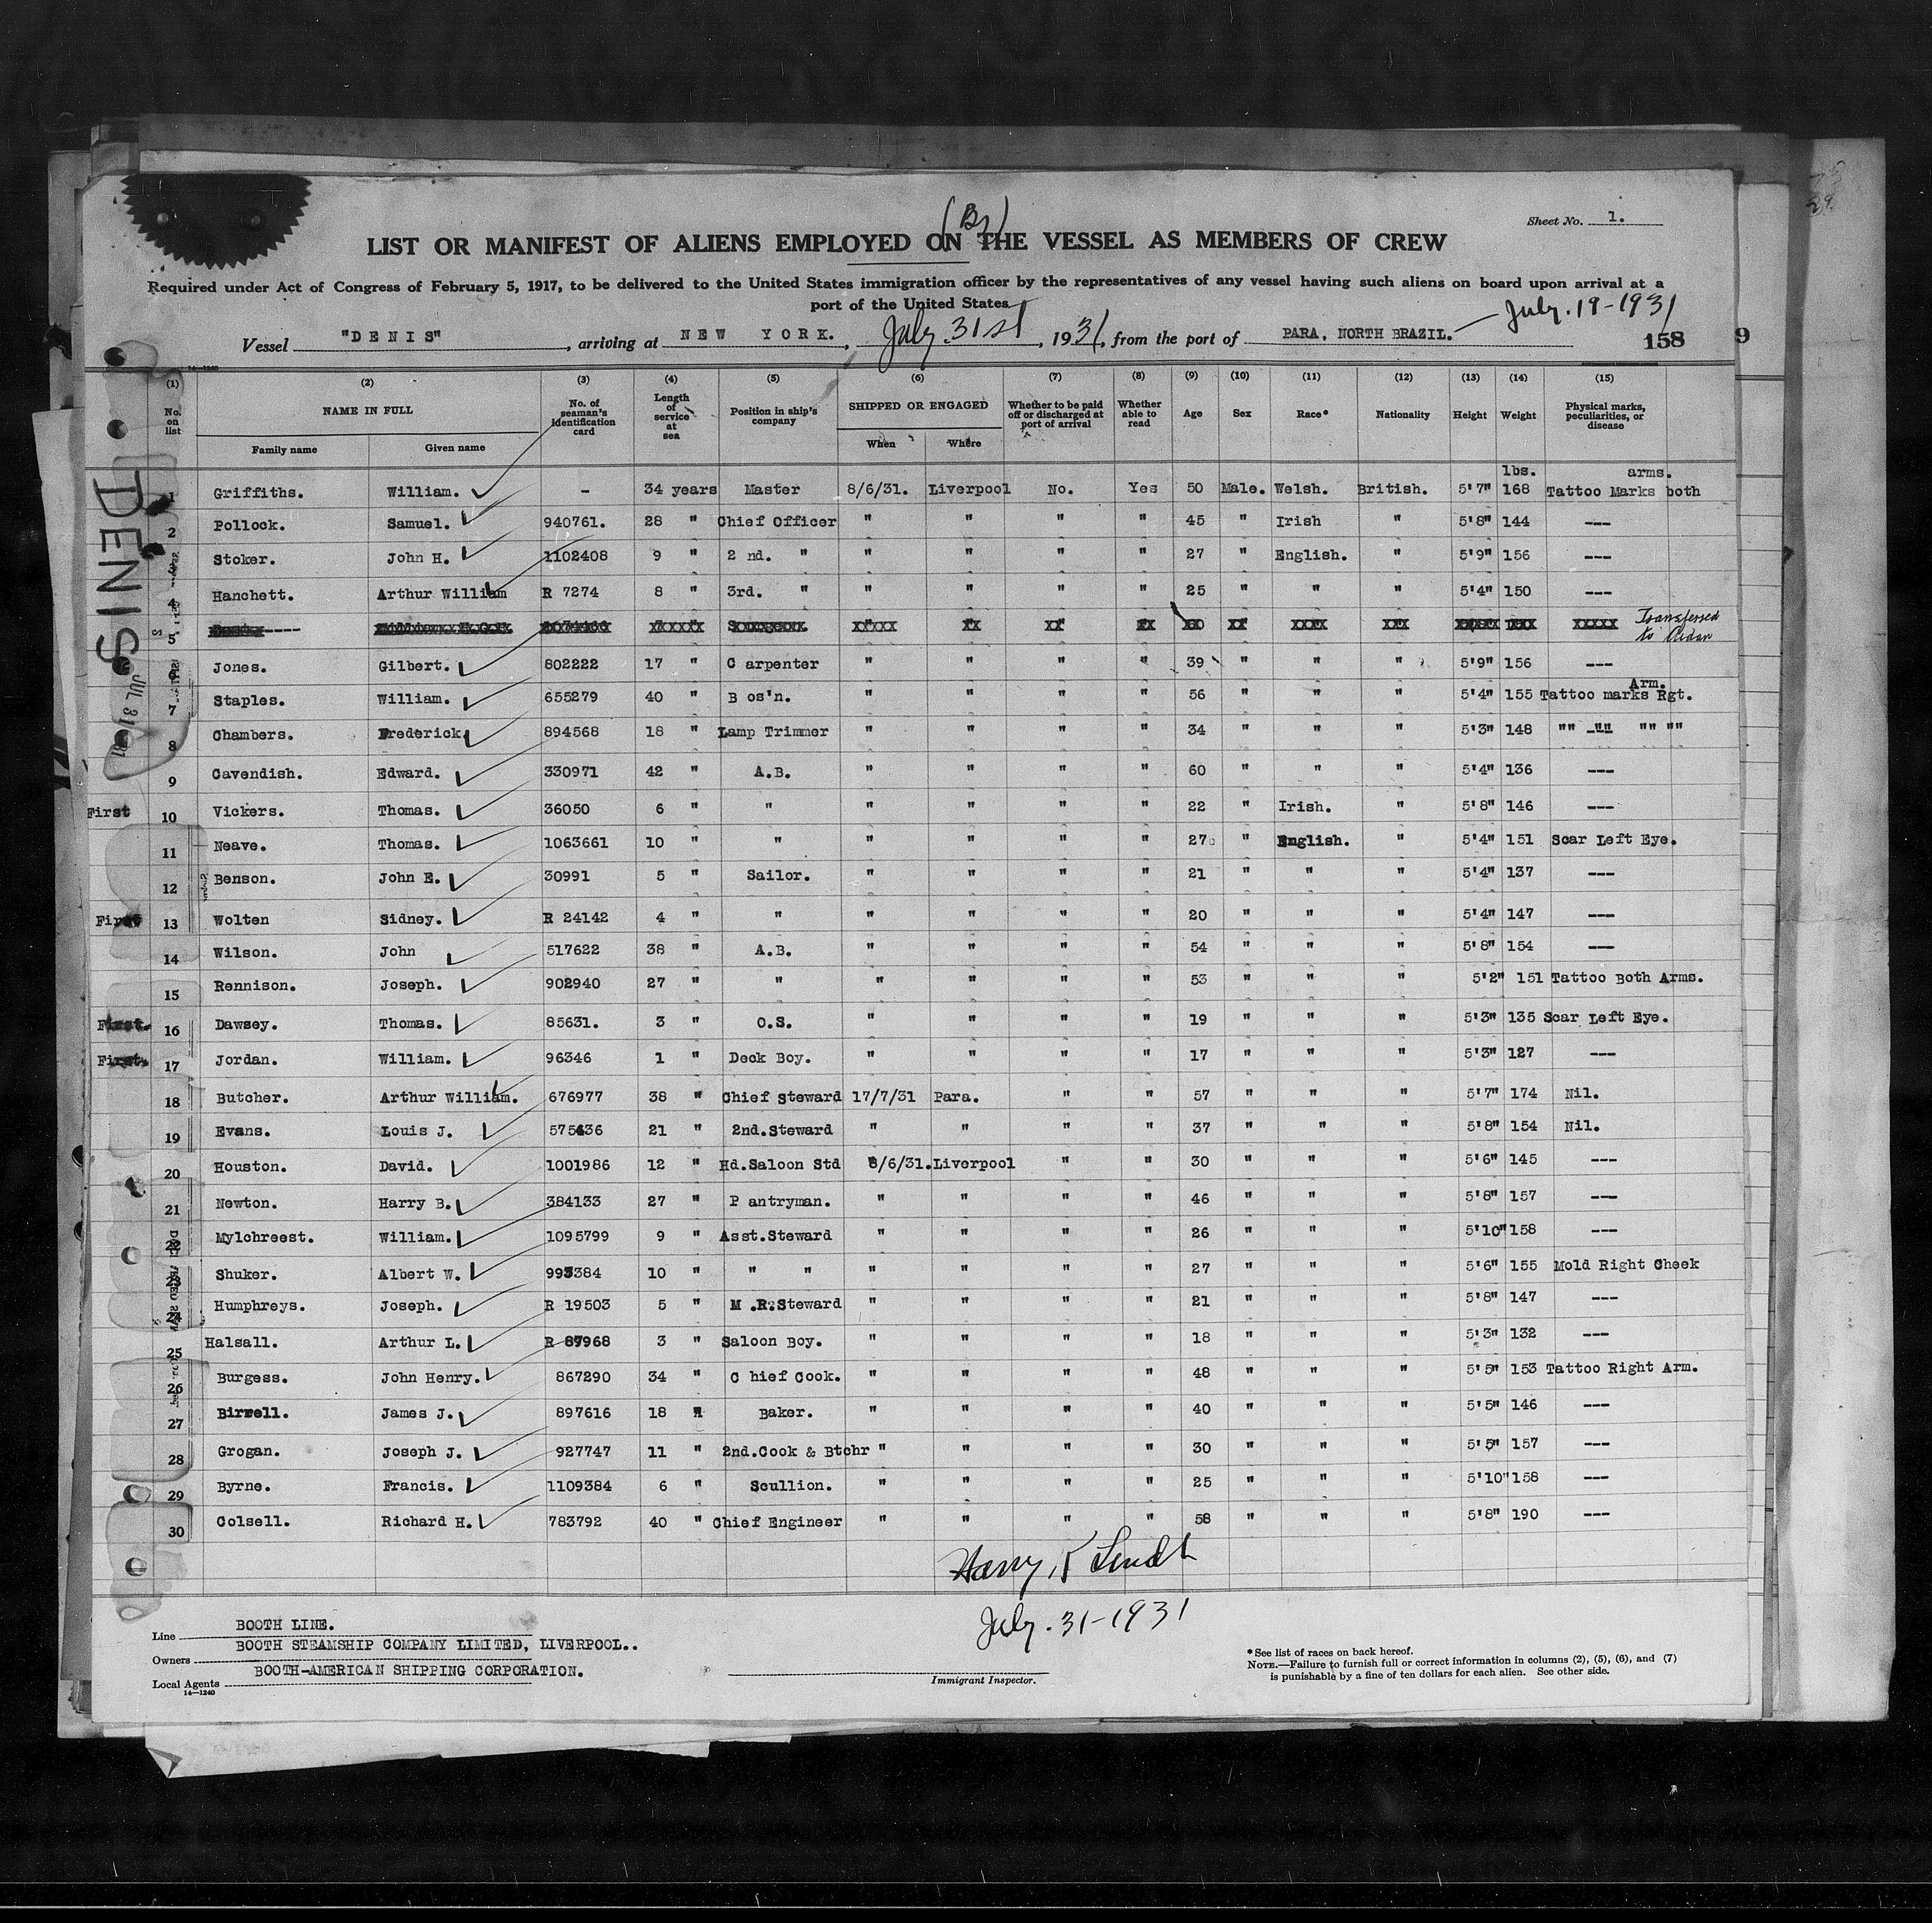 (Br)
Sheet No. 1.
LIST OR MANIFEST OF ALIENS EMPLOYED ON THE VESSEL AS MEMBERS OF CREW
Required under Act of Congress of February 5, 1917, to be delivered to the United States immigration officer by the representatives of any vessel having such aliens on board upon arrival at a
port of the United States
July. 19-1931
Vessel "DENIS", arriving at NEW YORK., July. 31st, 1931, from the port of PARA, NORTH BRAZIL.
158 9
14—1240
(1) (2) (3) (4) (5) (6) (7) (8) (9) (10) (11) (12) (13) (14) (15)
No. on list NAME IN FULL Family name Given name No. of seaman's identification card Length of service at sea Position in ship's company SHIPPED OR ENGAGED When Where Whether to be paid off or discharged at port of arrival Whether able to read Age Sex Race* Nationality Height Weight Physical marks, peculiarities, or disease
lbs. arms.
1 Griffiths. William. - 34 years Master 8/6/31. Liverpool No. Yes 50 Male. Welsh. British. 5'7" 168 Tattoo Marks both
2 Pollock. Samuel. 940761. 28 " Chief Officer " " " " 45 " Irish " 5'8" 144 ---
3 Stoker. John H. 1102408 9 " 2 nd. " " " " " 27 " English. " 5'9" 156 ---
4 Hanchett. Arthur William R 7274 8 " 3rd. " " " " " 25 " " " 5'4" 150 ---
5 Transferred to Aidan
6 Jones. Gilbert. 802222 17 " C arpenter " " " " 39 " " " 5'9" 156 ---
Arm.
7 Staples. William. 655279 40 " B os'n. " " " " 56 " " " 5'4" 155 Tattoo marks Rgt.
8 Chambers. Frederick. 894568 18 " Lamp Trimmer " " " " 34 " " " 5'3" 148 "" -""- "" ""
9 Cavendish. Edward. 330971 42 " A.B. " " " " 60 " " " 5'4" 136 ---
First 10 Vickers. Thomas. 36050 6 " " " " " " 22 " Irish. " 5'8" 146 ---
11 Neave. Thomas. 1063661 10 " " " " " " 27 " English. " 5'4" 151 Scar Left Eye.
12 Benson. John E. 30991 5 " Sailor. " " " " 21 " " " 5'4" 137 ---
First 13 Wolten Sidney. R 24142 4 " " " " " " 20 " " " 5'4" 147 ---
14 Wilson. John 517622 38 " A.B. " " " " 54 " " " 5'8" 154 ---
15 Rennison. Joseph. 902940 27 " " " " " " 53 " " " 5'2" 151 Tattoo Both Arms.
First. 16 Dawsey. Thomas. 85631. 3 " O.S. " " " " 19 " " " 5'3" 135 Scar Left Eye.
First. 17 Jordan. William. 96346 1 " Deck Boy. " " " " 17 " " " 5'3" 127 ---
18 Butcher. Arthur William. 676977 38 " Chief Steward 17/7/31 Para. " " 57 " " " 5'7" 174 Nil.
19 Evans. Louis J. 575436 21 " 2nd.Steward " " " " 37 " " " 5'8" 154 Nil.
20 Houston. David. 1001986 12 " Hd.Saloon Std 8/6/31. Liverpool " " 30 " " " 5'6" 145 ---
21 Newton. Harry B. 384133 27 " P antryman. " " " " 46 " " " 5'8" 157 ---
22 Mylchreest. William. 1095799 9 " Asst.Steward " " " " 26 " " " 5'10" 158 ---
23 Shuker. Albert W. 993384 10 " " " " " " " 27 " " " 5'6" 155 Mold Right Cheek
24 Humphreys. Joseph. R 19503 5 " M .R.Steward " " " " 21 " " " 5'8" 147 ---
25 Halsall. Arthur L. R 87968 3 " Saloon Boy. " " " " 18 " " " 5'3" 132 ---
26 Burgess. John Henry. 867290 34 " C hief Cook. " " " " 48 " " " 5'5" 153 Tattoo Right Arm.
27 Birrell. James J. 897616 18 " Baker. " " " " 40 " " " 5'5" 146 ---
28 Grogan. Joseph J. 927747 11 " 2nd.Cook & Btchr " " " " 30 " " " 5'5" 157 ---
29 Byrne. Francis. 1109384 6 " Scullion. " " " " 25 " " " 5'10" 158 ---
30 Colsell. Richard H. 783792 40 " Chief Engineer " " " " 58 " " " 5'8" 190 ---
DENIS
JUL 31
July. 31-1931
Immigrant Inspector.
Line BOOTH LINE.
Owners BOOTH STEAMSHIP COMPANY LIMITED, LIVERPOOL..
Local Agents BOOTH-AMERICAN SHIPPING CORPORATION.
14—1240
*See list of races on back hereof.
NOTE.—Failure to furnish full or correct information in columns (2), (5), (6), and (7)
is punishable by a fine of ten dollars for each alien. See other side.